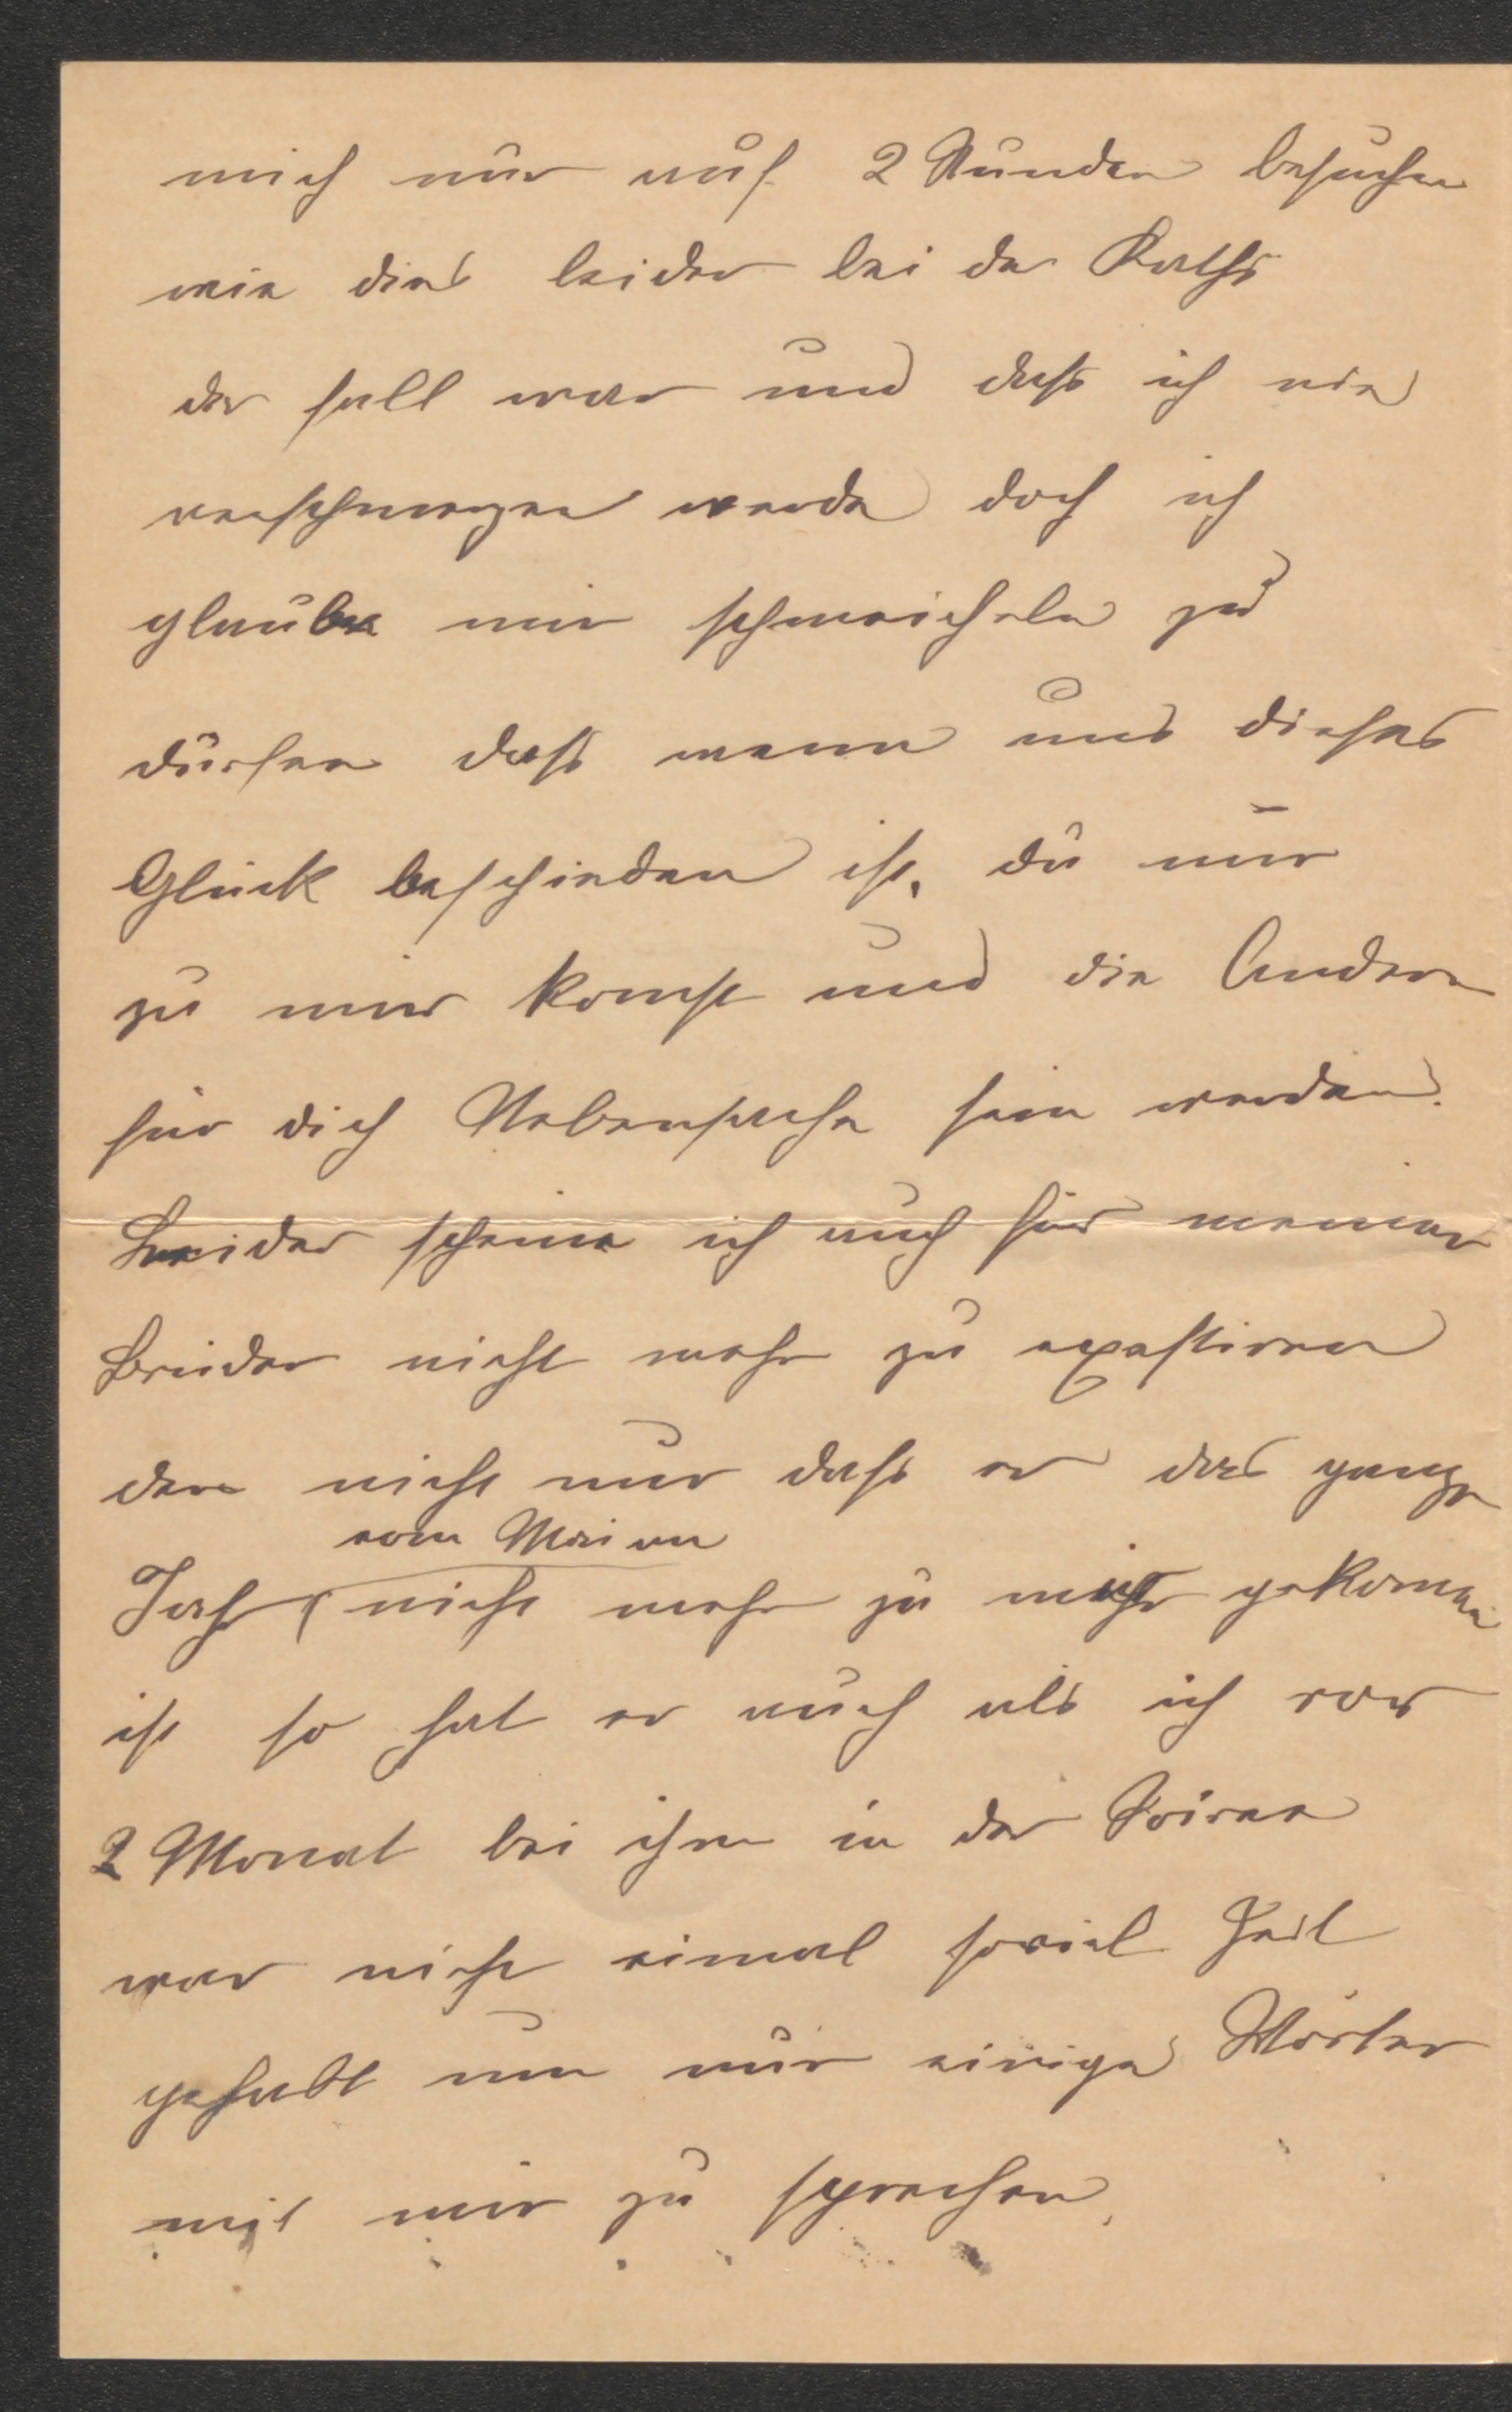 mich nur auf 2 Stunden besuchen
wie dies leider bei der Käthi
der fall war und dass ich nie
verschmerzen werde doch ich
glaube mir schmeicheln zu
dürfen dass wenn uns dieses
Glück beschieden ist, du nur
zu mir komst und die Andern
für dich Nebensache sein werden.
Leider scheine ich auch für meinen
Bruder nicht mehr zu exestiren
den nicht nur dass er das ganze
vom Mai an
Jahr ( nicht mehr zu mir gekommen
ist so hat er auch als ich vor
2 Monat bei ihm in der Soiree
war nicht eimal soviel Zeit
gehabt um nur einige Wörter
mit mir zu sprechen,